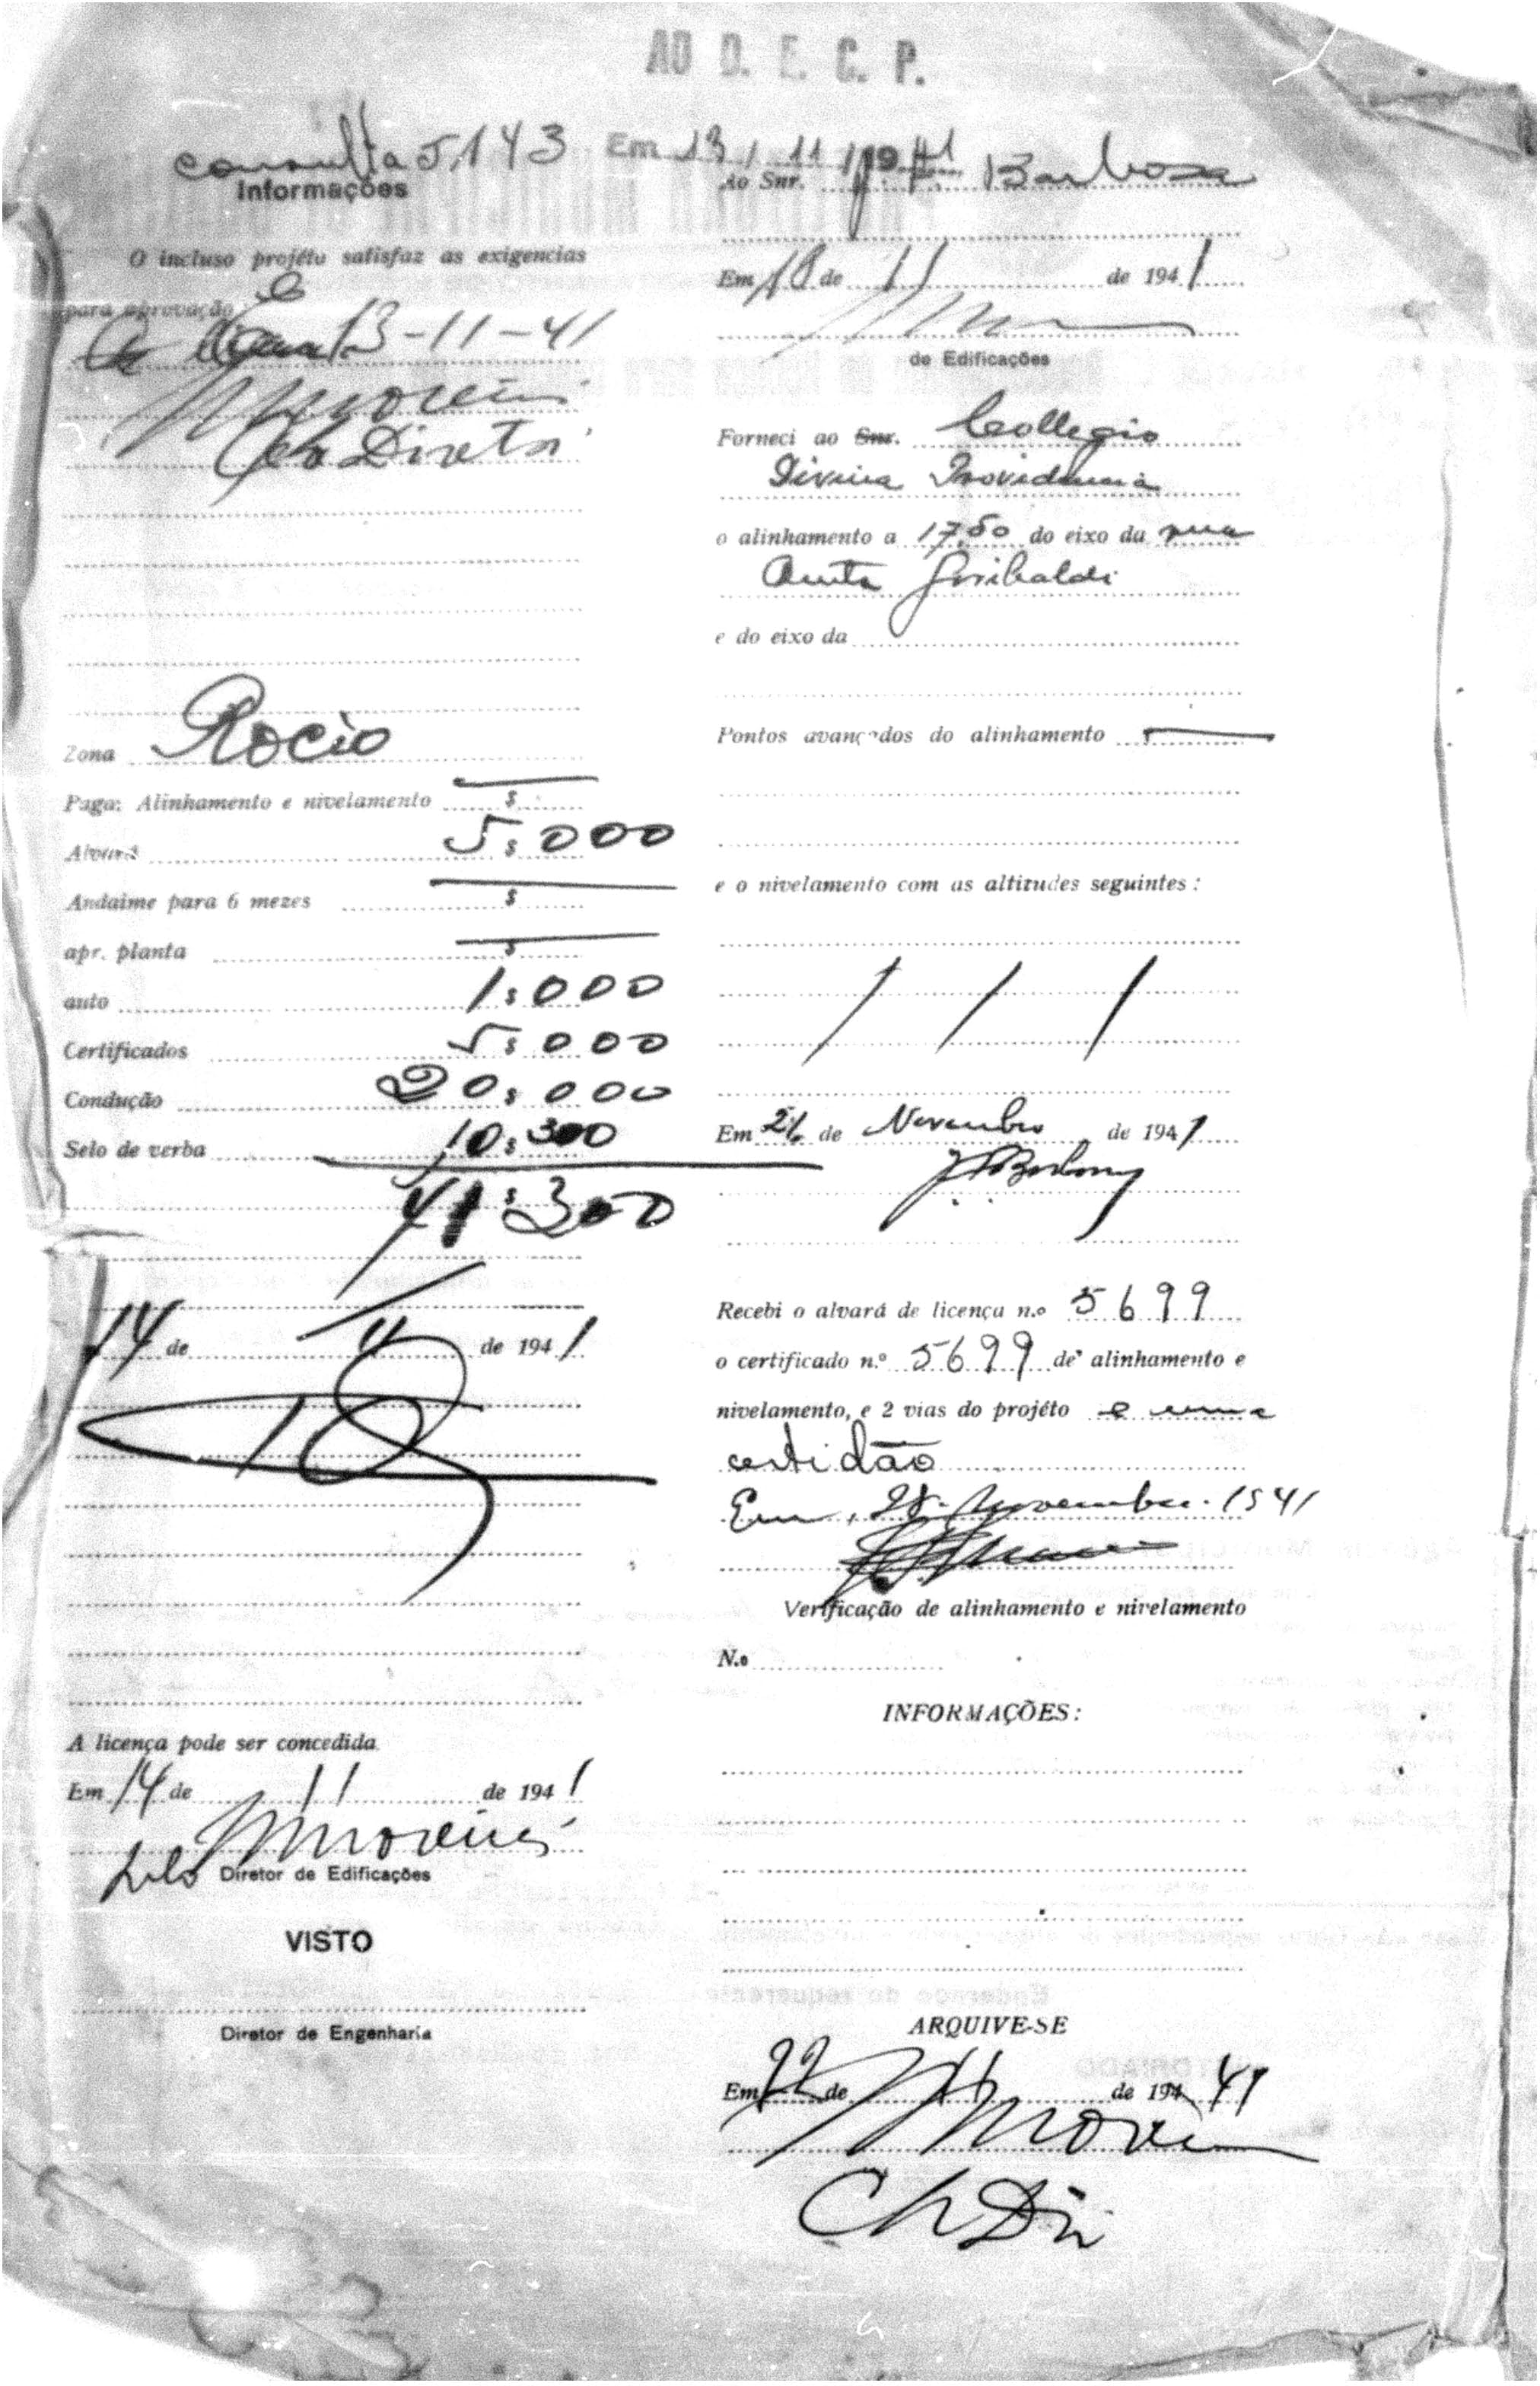 AO D. E. C. P.
consulta 5.143 Em 13 / 11 / 1941
Informações
O incluso projéto satisfaz as exigencias
para aprovação
13-11-41
Zona Rocio
Paga: Alinhamento e nivelamento $
Alvará 5$000
Andaime para 6 mezes $
apr. planta $
auto 1$000
Certificados 5$000
Condução 20$000
Selo de verba 10$300
41$300
14 de 11 de 1941
A licença pode ser concedida
Em 14 de 11 de 1941
pelo Diretor de Edificações
VISTO
Diretor de Engenharia
Ao Snr. Barbosa
Em 18 de 11 de 1941
de Edificações
Forneci ao Snr. Collegio
Divina Providencia
o alinhamento a 17,50 do eixo da rua
Anita Garibaldi
e do eixo da
Pontos avançados do alinhamento
e o nivelamento com as altitudes seguintes:
Em 21 de Novembro de 1941
Recebi o alvará de licença n.o 5699
o certificado n.o 5699 de alinhamento e
nivelamento, e 2 vias do projéto e uma
certidão
Em, 28. Novembro. 1941
Verificação de alinhamento e nivelamento
N.o
INFORMAÇÕES:
ARQUIVE-SE
Em 22 de 11 de 194 41